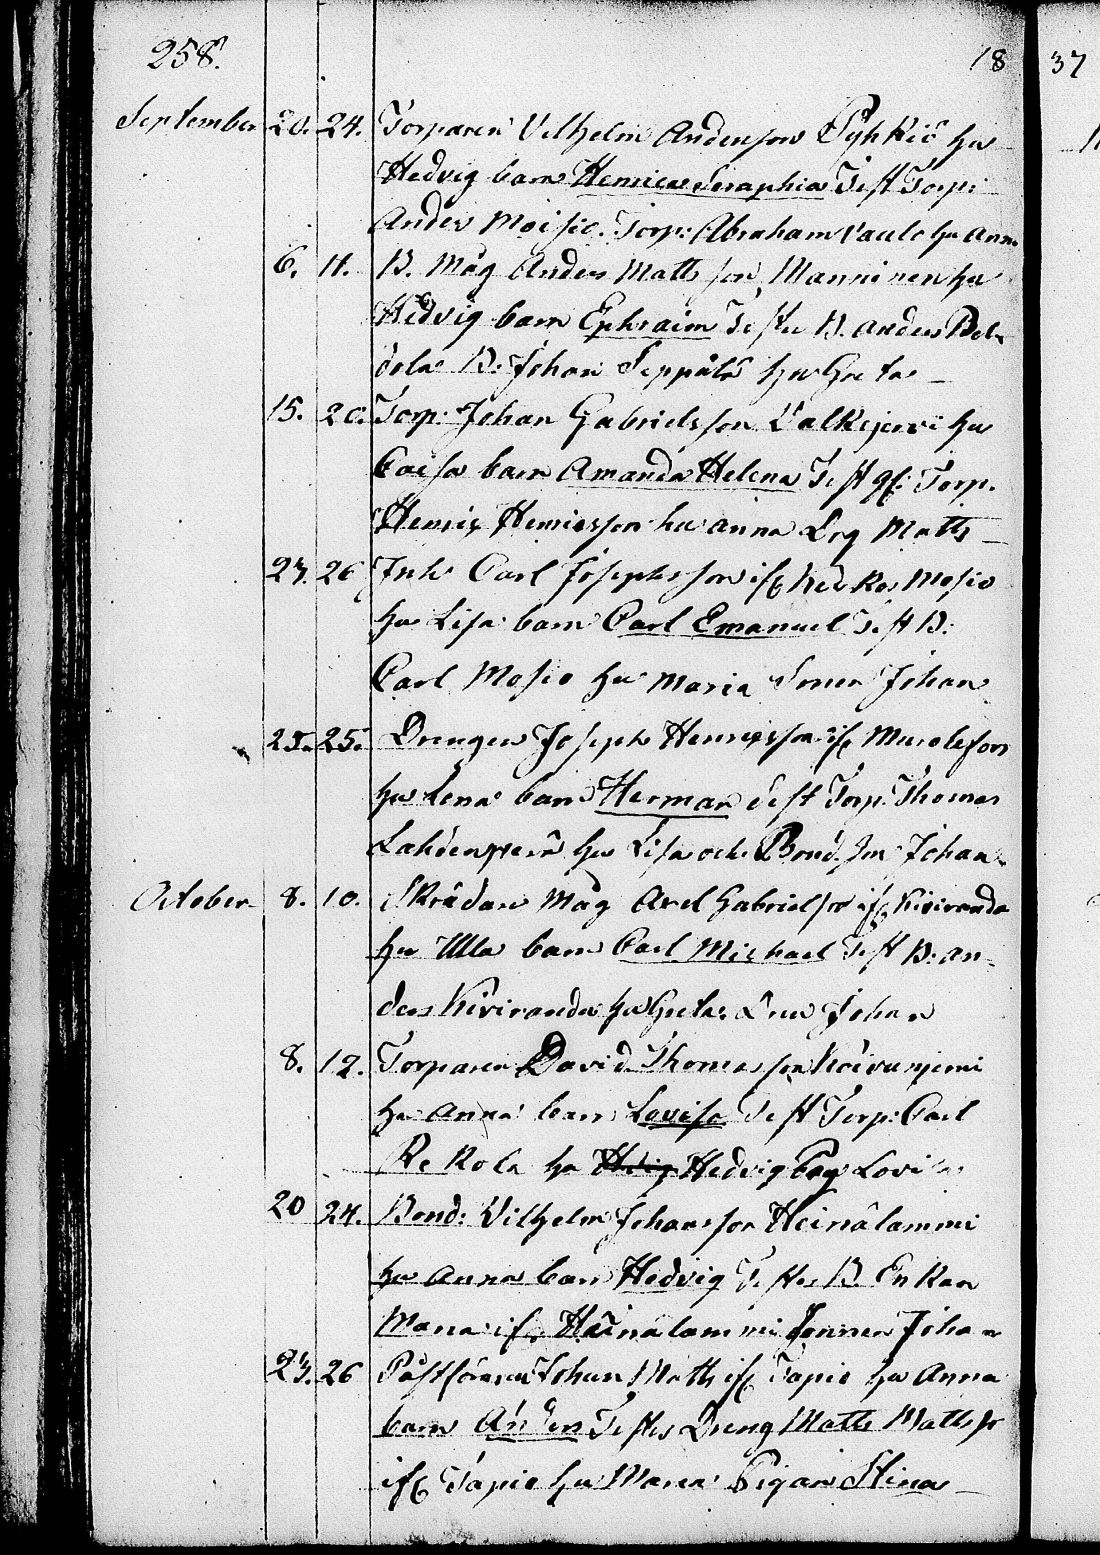 258. 18 37
September 20. 24. Torparen Vilhelm Andersson Pyhkiö hu
Hedvig barn Henrica Seraphia Test Torp:
Anders Moisio. Torp: Abraham Paulo hu Anna
6. 11. B. Måg Anders Matts son Manninen hu
Hedvig barn Ephraim Testes B. Anders
dola B: Johan Seppälä hu Greta
15. 20. Torp: Johan Gabrielsson Valkejervi hu
Caisa barn Amanda Helena Test gf: Torp.
Henric Henricsson hu Anna Drg Matts
23. 26 Inh Carl Josephsson if Mosio
hu Lisa barn Carl Emanuel Test B:
Carl Mosio hu Maria Sonen Johan
25. 25. Drengen Joseph Henricsson if Murolefors
hu Lena barn Herman Test Torp. Thomas
Lahdenperä hu Lisa och Bond. son Johan
October 8. 10. Skrädare Måg Axel Gabrielsson if Kiviranda
hu Ulla barn Carl Michael Test B: An-
ders Kiviranda hu Greta. Son Johan
8. 12. Torparen David Thomasson Koivuniemi
hu Anna barn Lovisa Test Torp: Carl
Rekola hu Hedvig Pig Lovisa
20 24. Bond: Vilhelm Johansson Heinälammi
hu Anna barn Hedvig Testes B. Enkan
Maria if Heinälammi Sonen Johan
23. 26 Johan Matts if Tapio hu Anna
barn Anders Testes Dreng Matts Matts sr
if Tapio hu Maria Pigan Stina